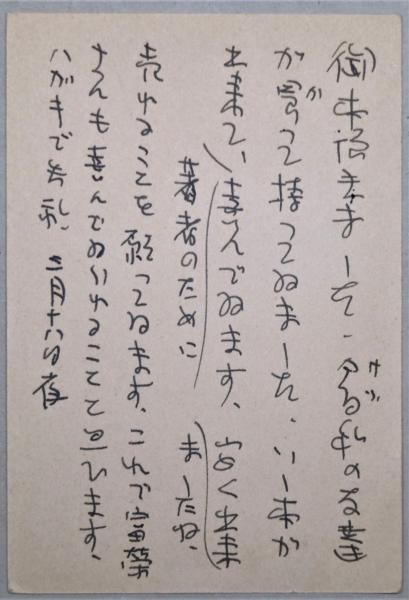 御本 ました・ 私の友達
が買って持ってゐました、いい本が
出来て、喜んでゐます、安く出来
ましたね、
著者のために
売れることを願ってゐます、これで富榮
さんも喜んでゐられることと思ひます、
ハガキで失礼 三月十八日夜